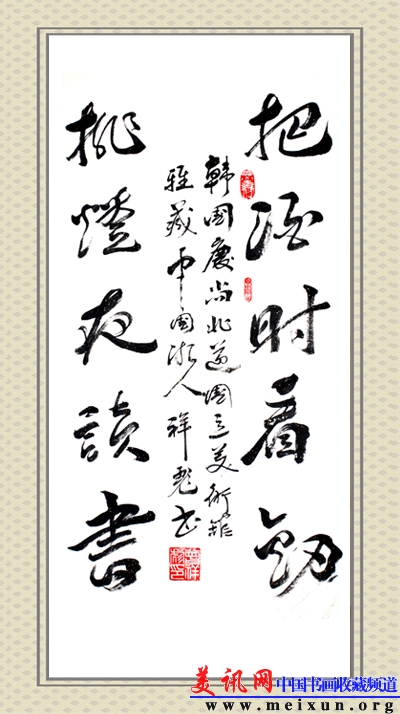 把酒时看劒
韩国庆尚北道国立美術館
雅藏中国浙人祥彪书
挑燈夜读書
美讯网中国书画收藏频道
www.meixun.org